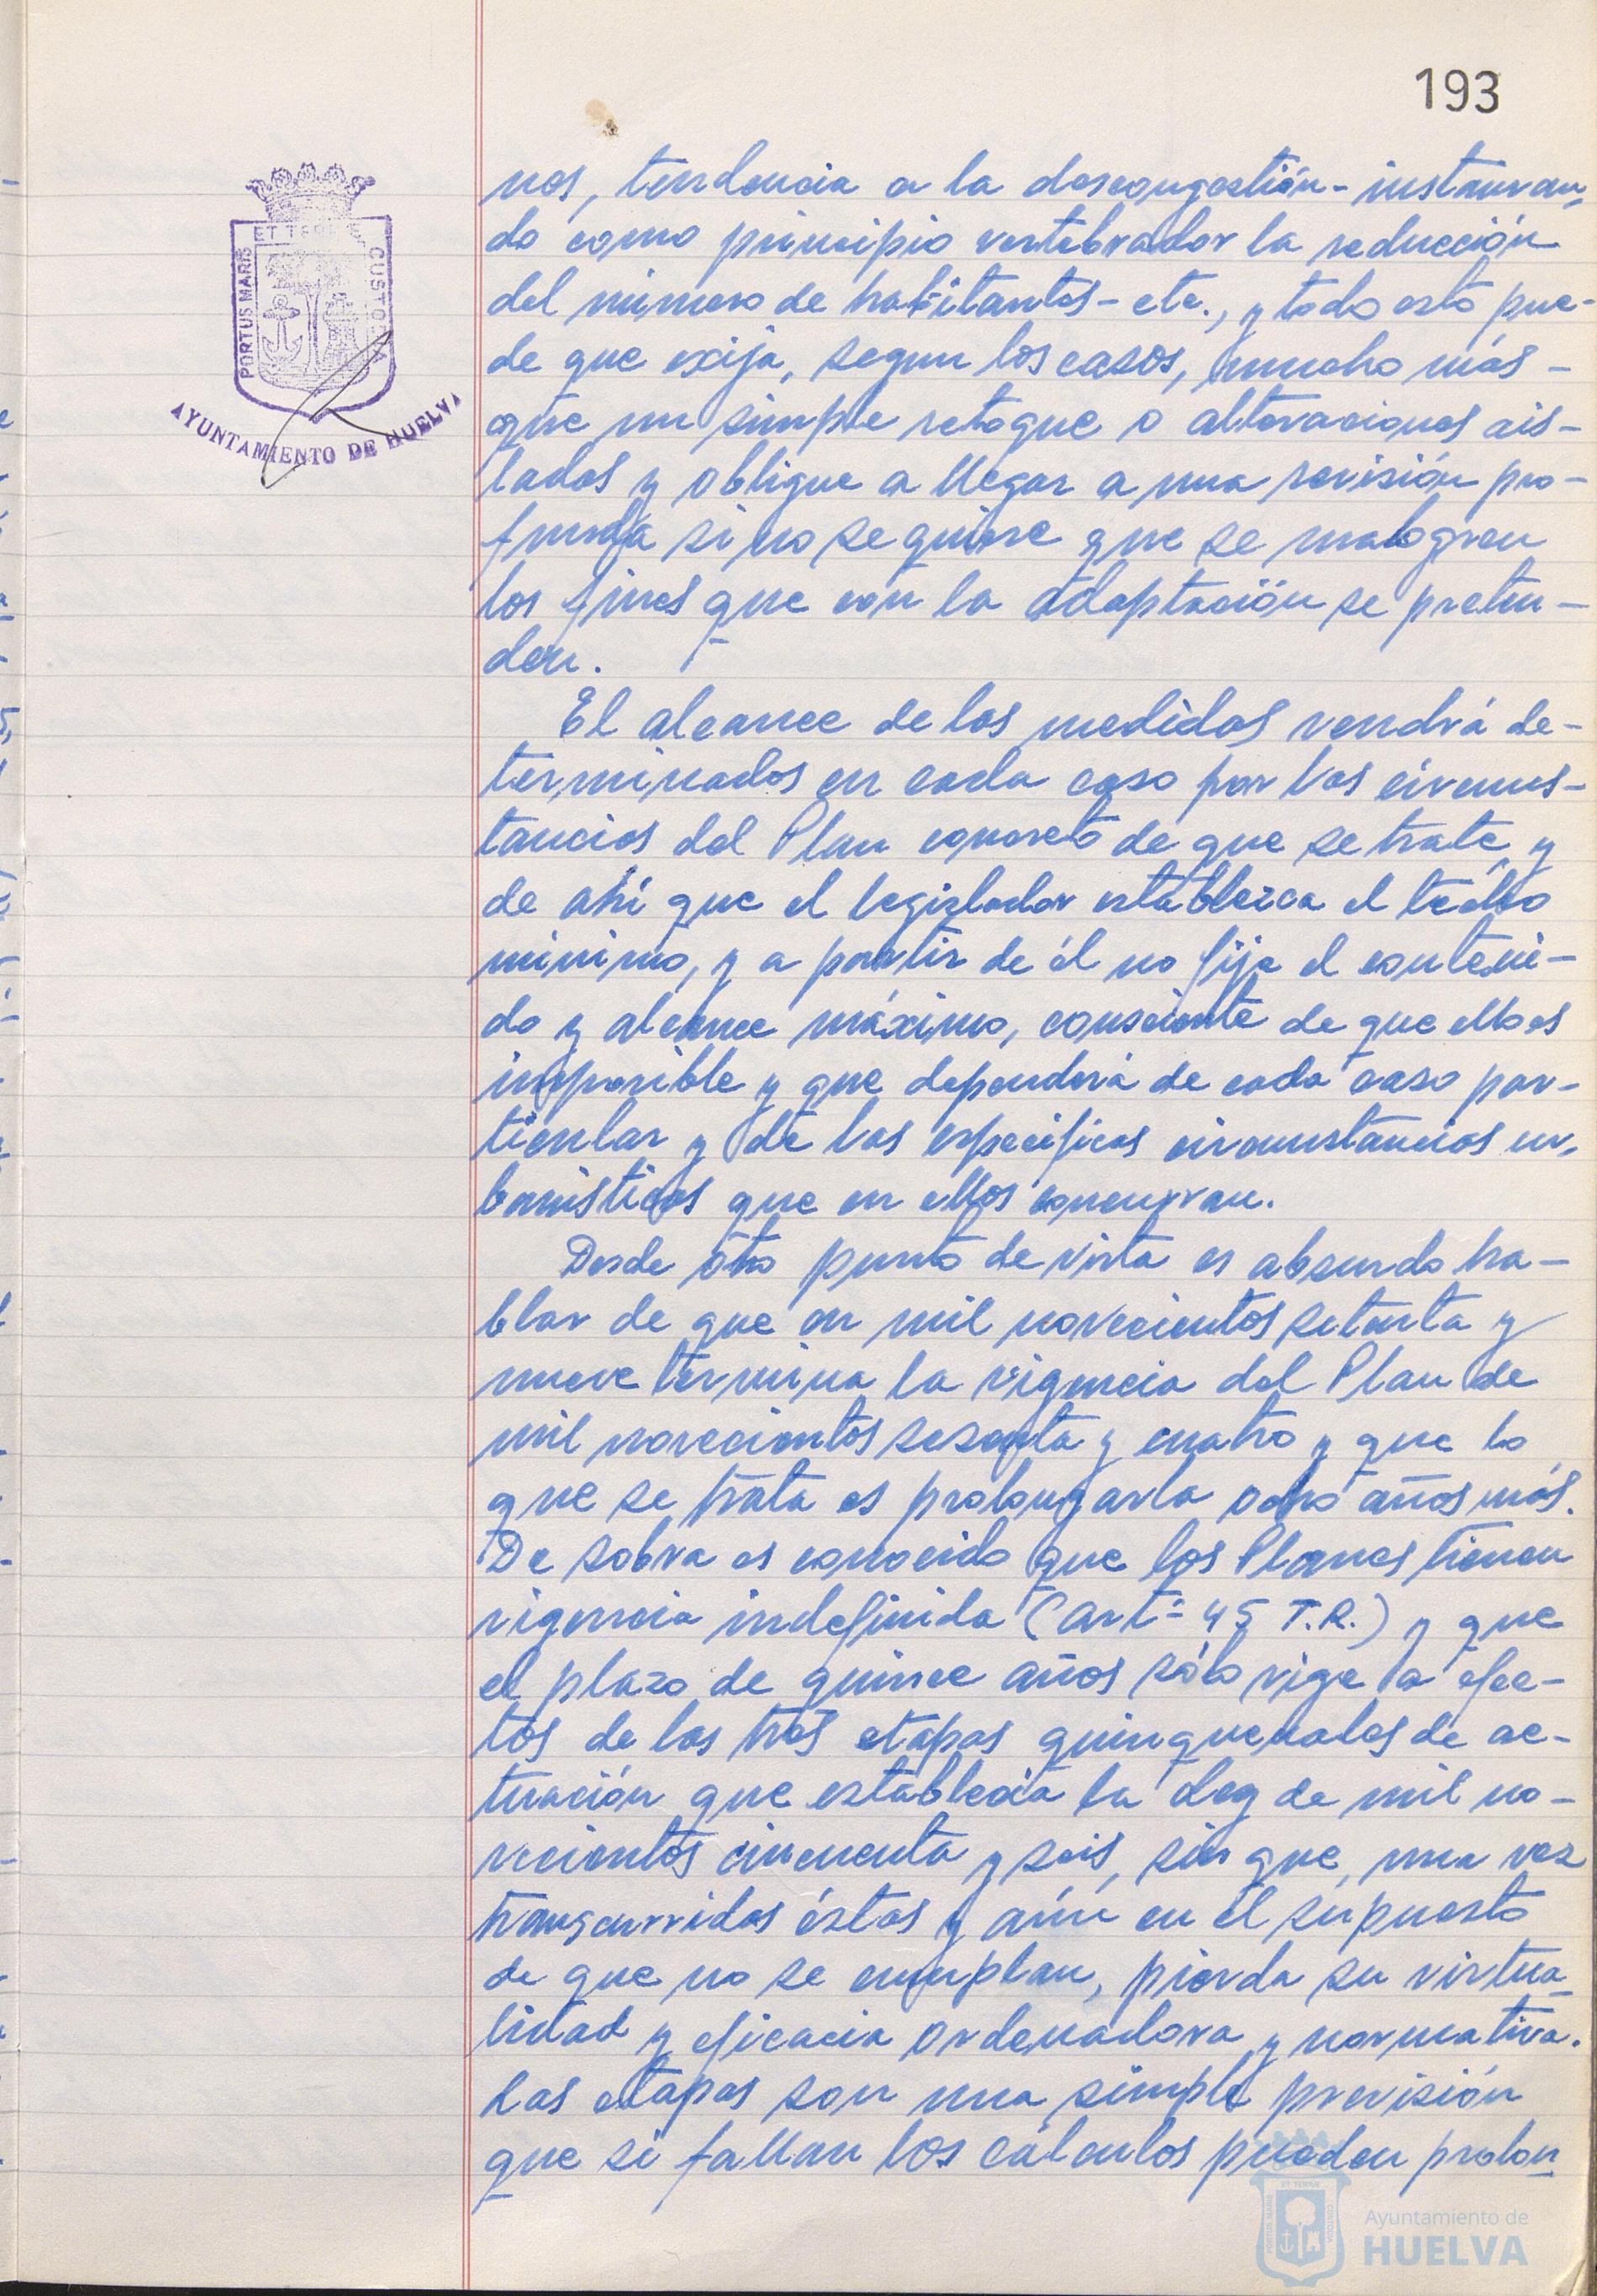 193
ET TERRE
PORTUS MARIS
CUSTODIA
AYUNTAMIENTO DE HUELVA
nos, tendencia a la descongestión - instauran_
do como principio vertebrador la reducción
del número de habitantes - etc., y todo esto pue-
de que exija, segun los casos, mucho más -
que un simple retoque o alteraciones ais-
ladas y obligue a llegar a una revisión pro-
funda si no se quiere que se malogren
los fines que con la adaptación se preten-
den.
El alcance de las medidas vendrá de-
terminados en cada caso por las circuns-
tancias del Plan concreto de que se trate, y
de ahí que el legislador establezca el techo
minimo, y a partir de él no fija el conteni-
do y alcance máximo, consciente de que ello es
imposible y que dependerá de cada caso par-
ticular y de las especificas circunstancias ur_
banisticas que en ellos concurran.
Desde otro punto de vista es absurdo ha-
blar de que en mil novecientos setenta y
nueve termina la vigencia del Plan de
mil novecientos sesenta y cuatro y que lo
que se trata es prolongarla ocho años más.
De sobra es conocido que los Planes tienen
vigencia indefinida (artº 45 T.R.) y que
el plazo de quince años sólo rige a efec-
tos de las tres etapas quinquenales de ac-
tuación que establecía la Ley de mil no-
vecientos cincuenta y seis, sin que, una vez
transcurridas éstas y aún en el supuesto
de que no se cumplan, pierda su virtua_
lidad y eficacia ordenadora y normativa.
Las etapas son una simple previsión
que si fallan los cálculos pueden prolon_
Ayuntamiento de
HUELVA